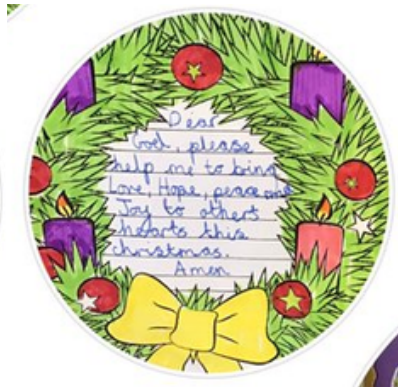 Dear
God, please
help me to bring
Love, Hope, peace and
Joy to others
hearts this
christmas.
Amen